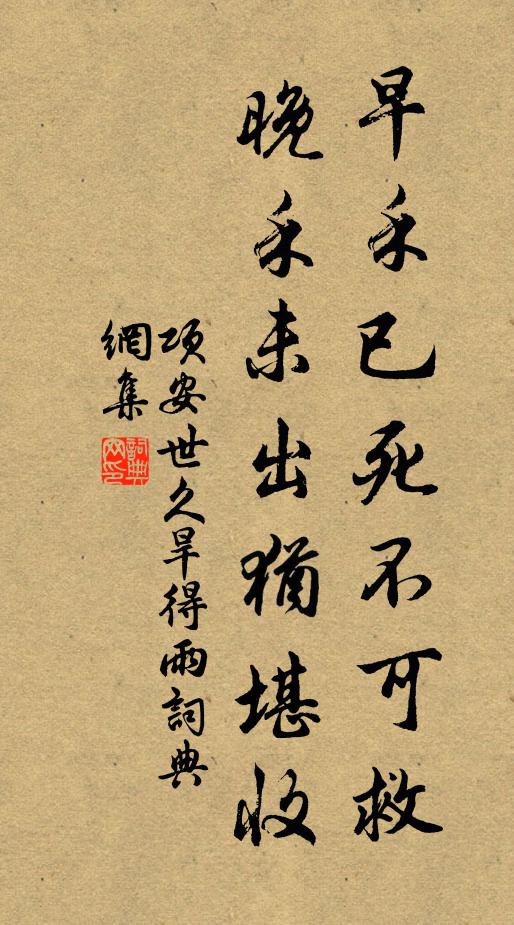 早禾已死不可救
晚禾未出猶堪收
項安世久旱得雨詞典
網集
詞典網印